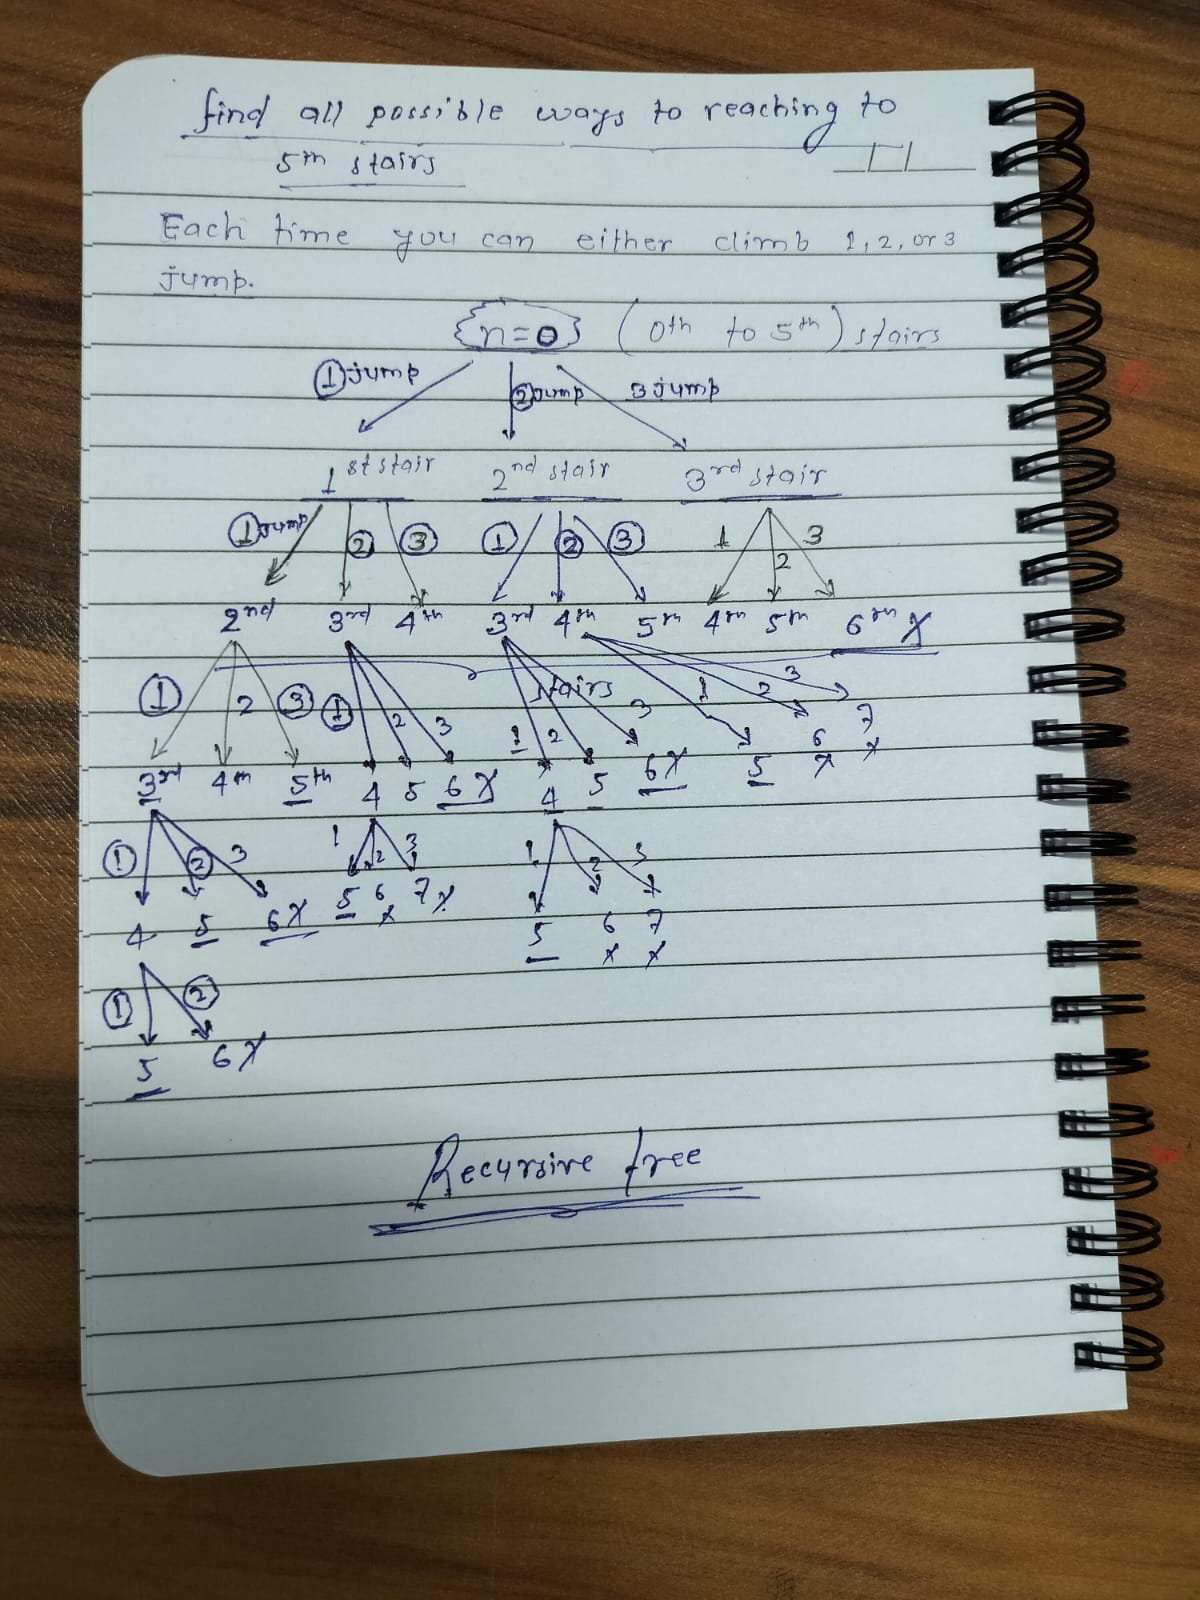 find all possible ways to reaching to
5th stairs
Each time you can either climb 1, 2, or 3
jump.
{n=0} (0th to 5th) stairs
①jump ②jump 3jump
1st stair 2nd stair 3rd stair
①jump ② ③ ① ② ③ 1 2 3
2nd 3rd 4th 3rd 4th 5th 4th 5th 6th X
stairs
① 2 ③ ① 2 3 1 2 3 1 2 3
3rd 4th 5th 4 5 6 X 4 5 6X 5 6 X 7 X
① ② 3 1 2 3 1 2 3
4 5 6X 5 6 X 7X 5 6 X 7 X
① ②
5 6X
Recursive tree